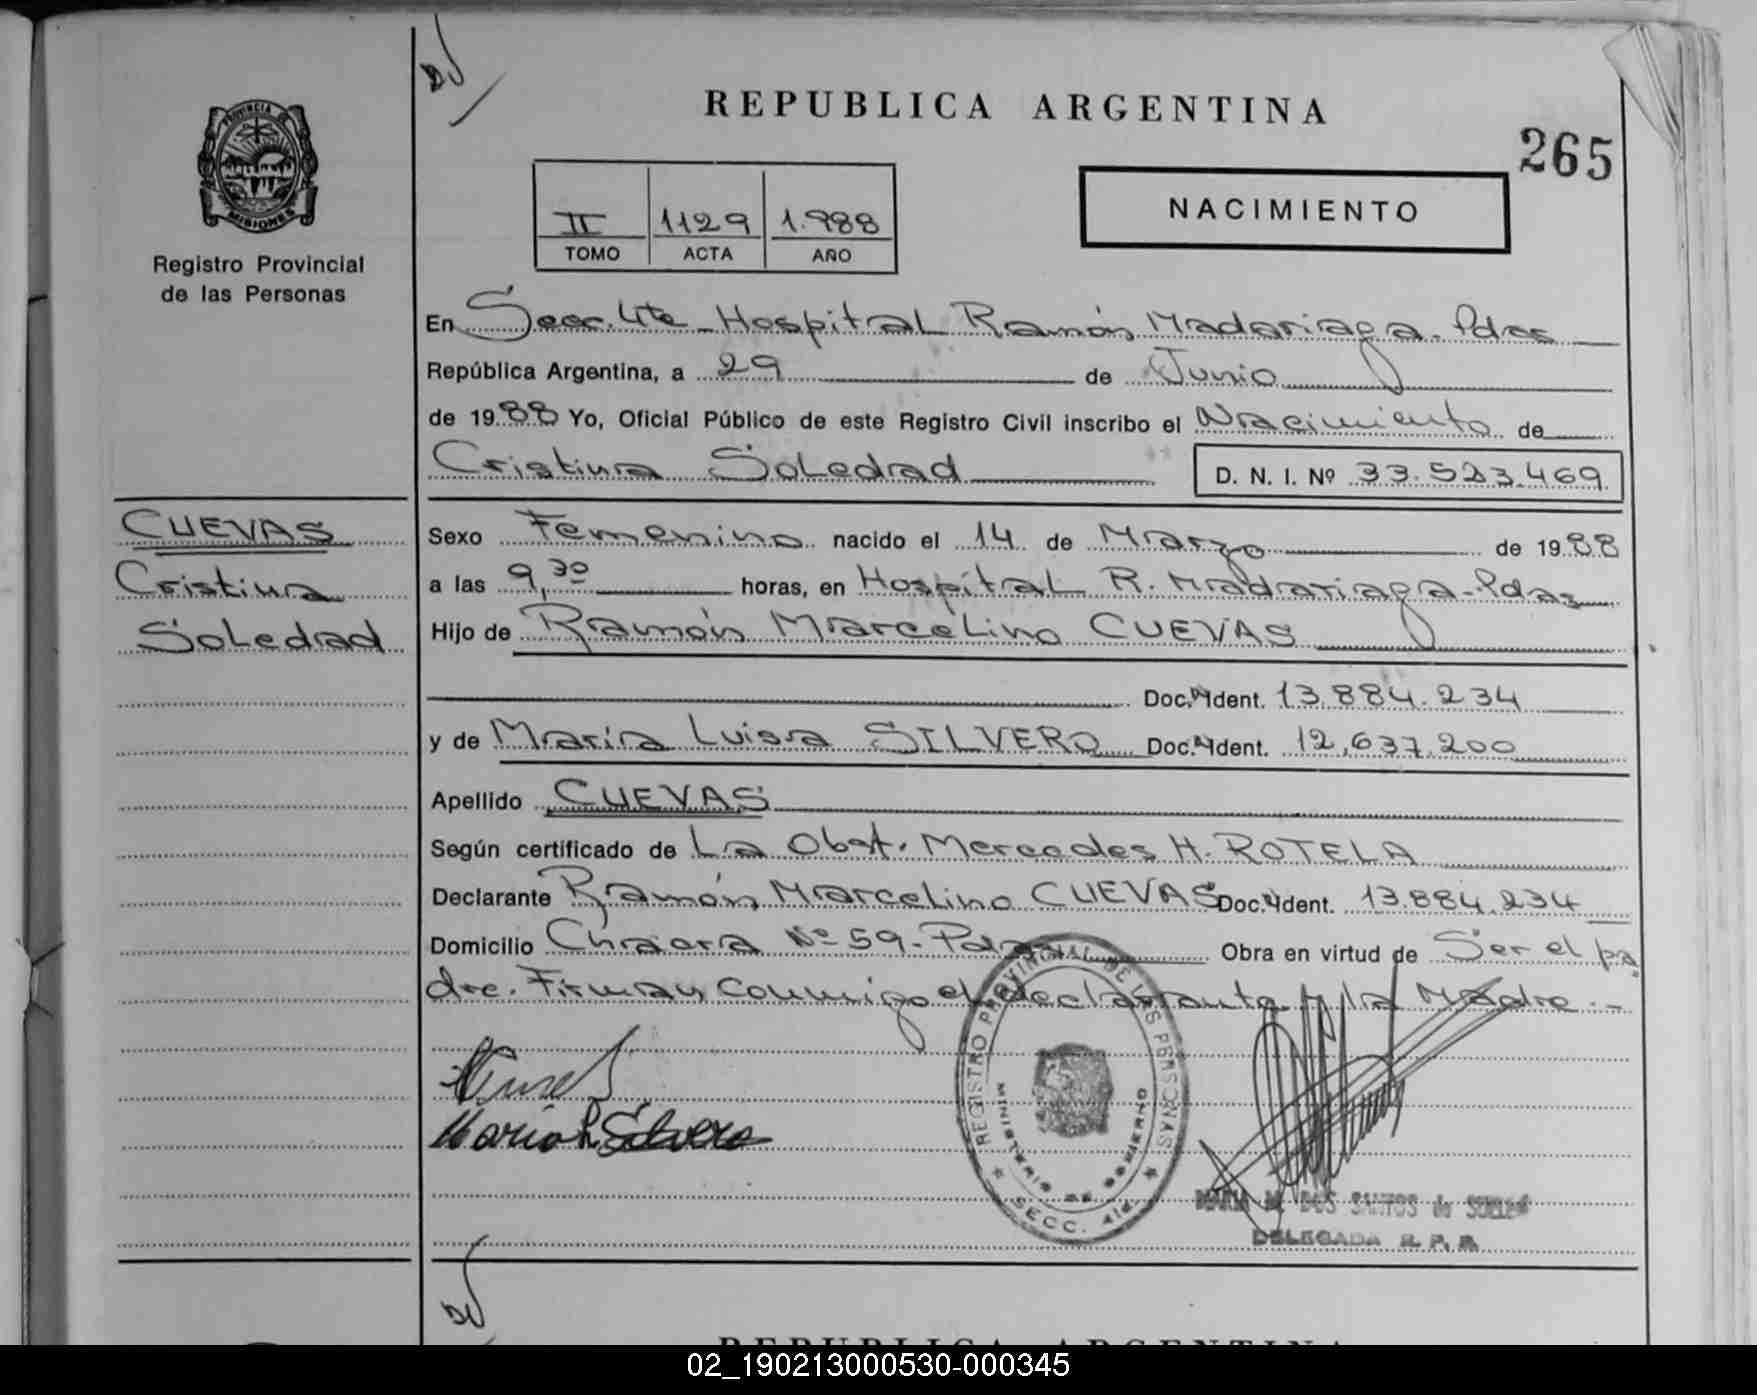 REPUBLICA ARGENTINA
265
PROVINCIA DE
MISIONES
Registro Provincial
de las Personas
II 1129 1.988
TOMO ACTA AÑO
NACIMIENTO
En Secc. 4ta Hospital Ramón Madariaga - Pdas
República Argentina, a 29 de Junio
de 1988 Yo, Oficial Público de este Registro Civil inscribo el Nacimiento de
Cristina Soledad D. N. I. Nº 33.523.469
CUEVAS
Cristina
Soledad
Sexo Femenino nacido el 14 de Marzo de 1988
a las 9,30 horas, en Hospital R. Madariaga - Pdas
Hijo de Ramón Marcelino CUEVAS
Doc. N Ident. 13.884.234
y de María Luisa SILVERO Doc. N Ident. 12,637.200
Apellido CUEVAS
Según certificado de La Obst. Mercedes H. ROTELA
Declarante Ramón Marcelino CUEVAS Doc. N Ident. 13.884.234
Domicilio Chacra Nº 59 - Pdas Obra en virtud de Ser el pa
dre. Firman conmigo el declarante y la Madre.-
Maria L Silvero
REGISTRO PROVINCIAL DE LAS PERSONAS
MINISTERIO DE GOBIERNO
SECC. 4ta.
MARIA M. DOS SANTOS de
DELEGADA R. P. P.
REPUBLICA ARGENTINA
02_190213000530-000345